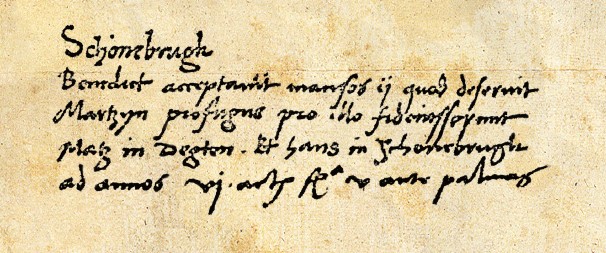 Schonebrugk
Benedict acceptavit mansos ij quos deseruit
Martzyn profugus pro illo fideiusserunt
Matz in Degten. Et hans in Schonebrugk
ad annos vj. acth fr^a v ante palmas